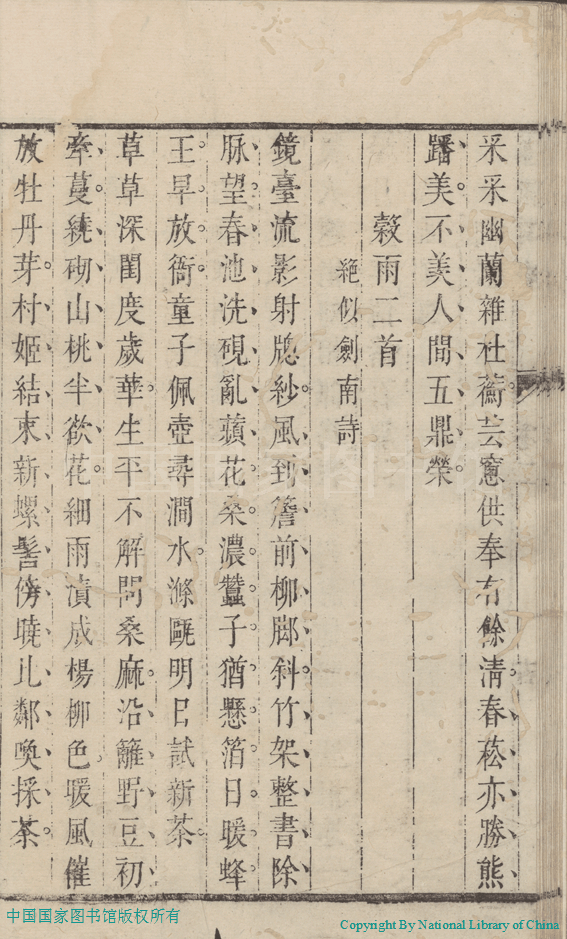 采采幽蘭雜社蘅芸窻供奉有餘清春菘亦勝熊
蹯美不羡人間五鼎榮
穀雨二首
絶似劍南詩
鏡臺流影射牕紗風到簷前柳脚斜竹架整書除
脉望春池洗硯亂蘋花桑濃蠶子猶懸箔日暖蜂
王早放衙童子佩壺尋澗水滌甌明日試新茶
草草深閨度歲華生平不解問桑麻沿籬野豆初
牽蔓繞砌山桃半欲花細雨漬成楊柳色暖風催
放牡丹芽村姬結束新螺髻傍曉比鄰喚採茶
中国国家图书馆版权所有
Copyright By National Library of China